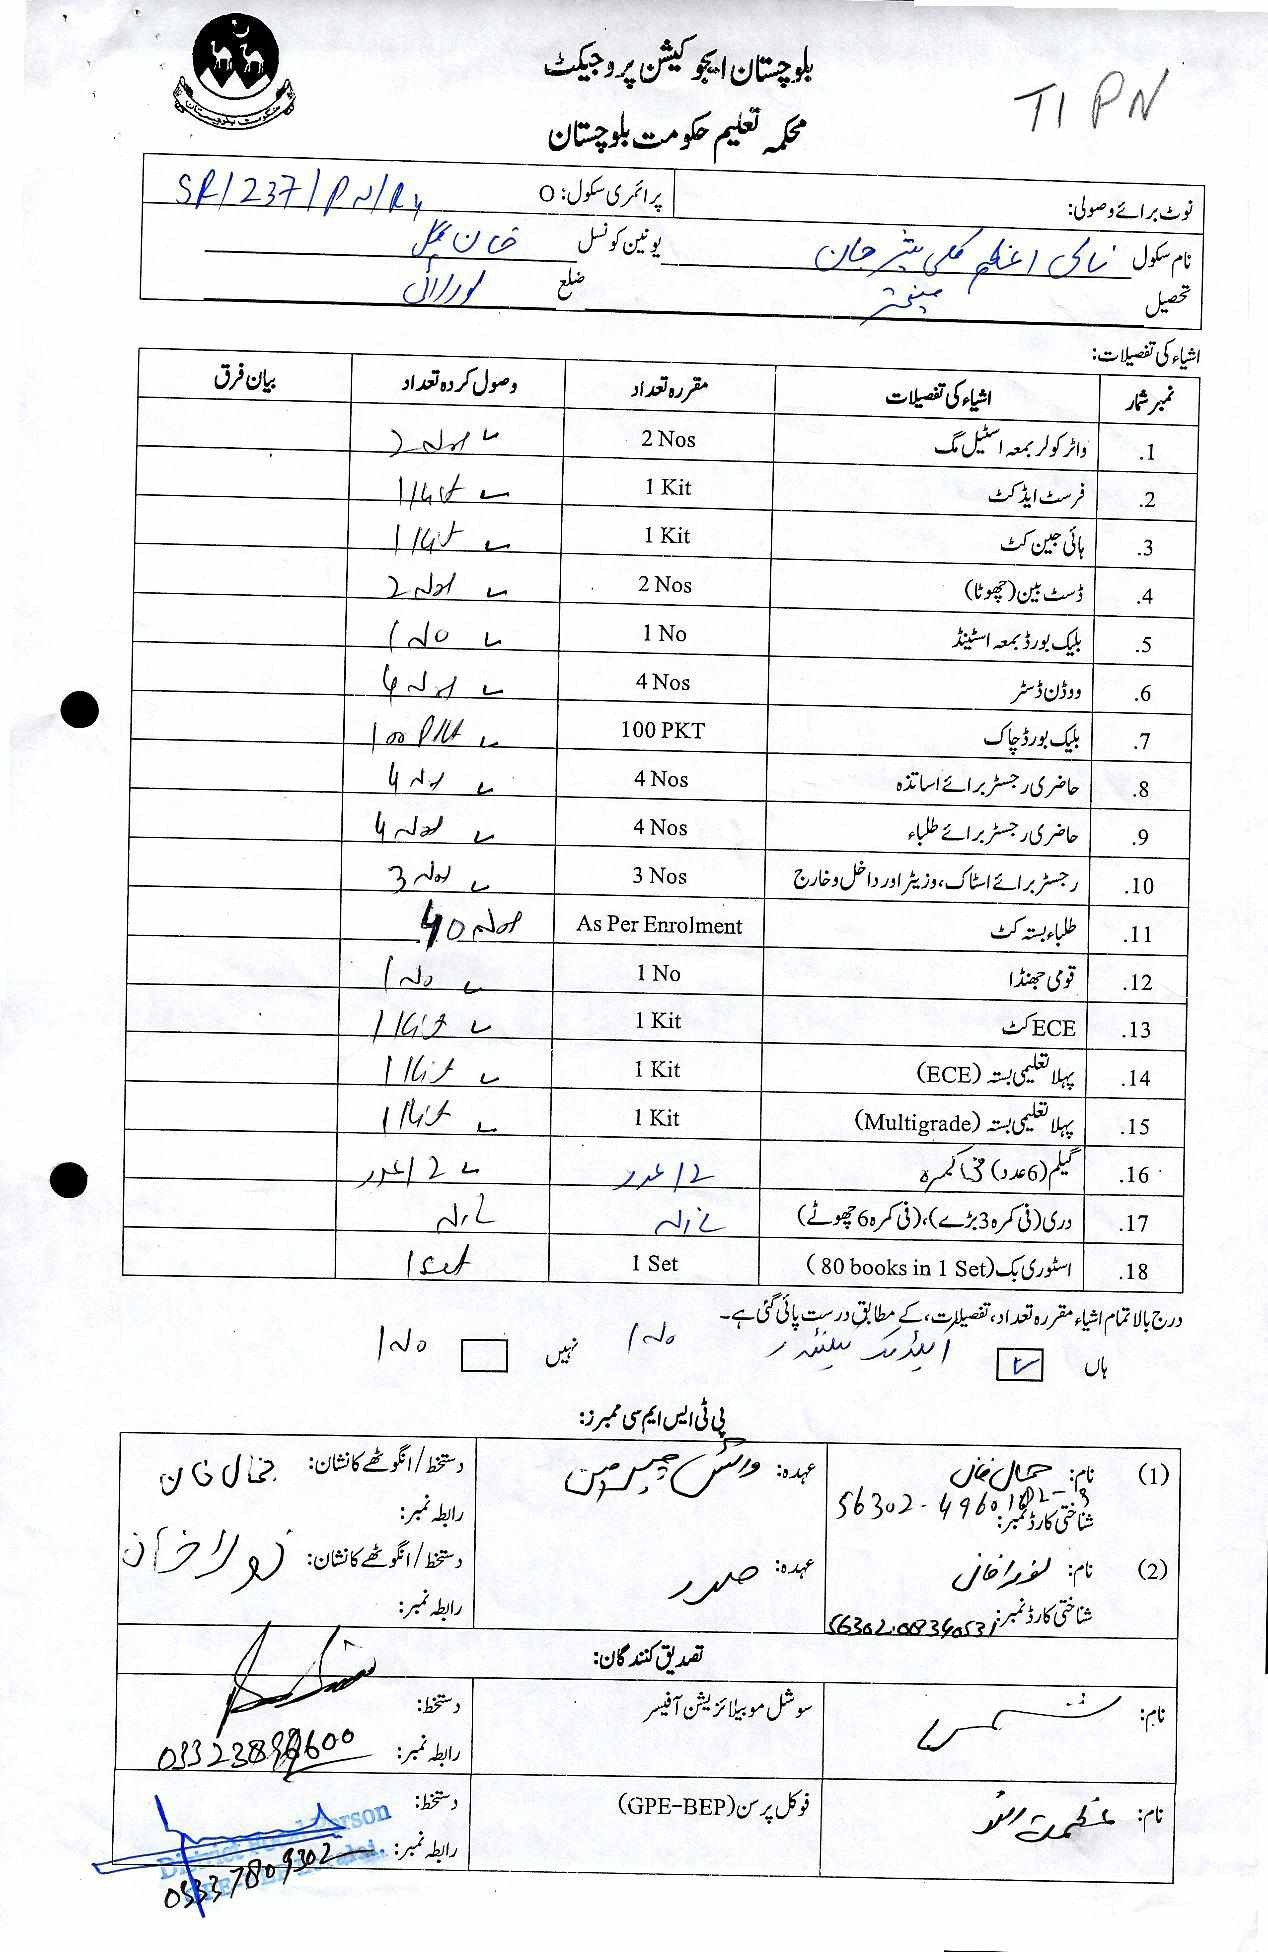 بلوچستان ایجوکیشن پروجیکٹ
محکمہ تعلیم حکومت بلوچستان
TI PN
حکومت بلوچستان
نوٹ برائے وصولی: پرائمری سکول: O SR/237/PN/
نام سکول یونین کونسل خان
تحصیل ضلع لورالائی
اشیاء کی تفصیلات:
نمبر شمار اشیاء کی تفصیلات مقررہ تعداد وصول کردہ تعداد بیان فرق
1. واٹر کولر بمعہ اسٹیل مگ 2 Nos 2 Nos
2. فرسٹ ایڈ کٹ 1 Kit 1 Kit
3. ہائی جین کٹ 1 Kit 1 Kit
4. ڈسٹ بین (چھوٹا) 2 Nos 2 Nos
5. بلیک بورڈ بمعہ اسٹینڈ 1 No 1 No
6. ووڈن ڈسٹر 4 Nos 4 Nos
7. بلیک بورڈ چاک 100 PKT 100 PKT
8. حاضری رجسٹر برائے اساتذہ 4 Nos 4 Nos
9. حاضری رجسٹر برائے طلباء 4 Nos 4 Nos
10. رجسٹر برائے اسٹاک، وزیٹر اور داخل و خارج 3 Nos 3 Nos
11. طلباء بستہ کٹ As Per Enrolment 40 Nos
12. قومی جھنڈا 1 No 1 No
13. ECE کٹ 1 Kit 1 Kit
14. پہلا تعلیمی بستہ (ECE) 1 Kit 1 Kit
15. پہلا تعلیمی بستہ (Multigrade) 1 Kit 1 Kit
16. گیلم (6 عدد) فی کمرہ 12 عدد 12 عدد
17. دری (فی کمرہ 3 بڑے)، (فی کمرہ 6 چھوٹے)
18. اسٹوری بک (80 books in 1 Set) 1 Set 1 Set
درج بالا تمام اشیاء مقررہ تعداد، تفصیلات، کے مطابق درست پائی گئی ہے۔
ہاں 1 No نہیں 1 No
پی ٹی ایس ایم سی ممبرز:
(1) نام: جمال خان عہدہ: وائس چیئرمین دستخط/انگوٹھے کا نشان: جمال خان
شناختی کارڈ نمبر: رابطہ نمبر:
(2) نام: عہدہ: صدر دستخط/انگوٹھے کا نشان:
شناختی کارڈ نمبر: رابطہ نمبر:
تصدیق کنندگان:
نام: شمس سوشل موبیلائزیشن آفیسر دستخط:
رابطہ نمبر:
نام: عظمت اللہ فوکل پرسن (GPE-BEP) دستخط:
District Focal Person
رابطہ نمبر: 03337809302